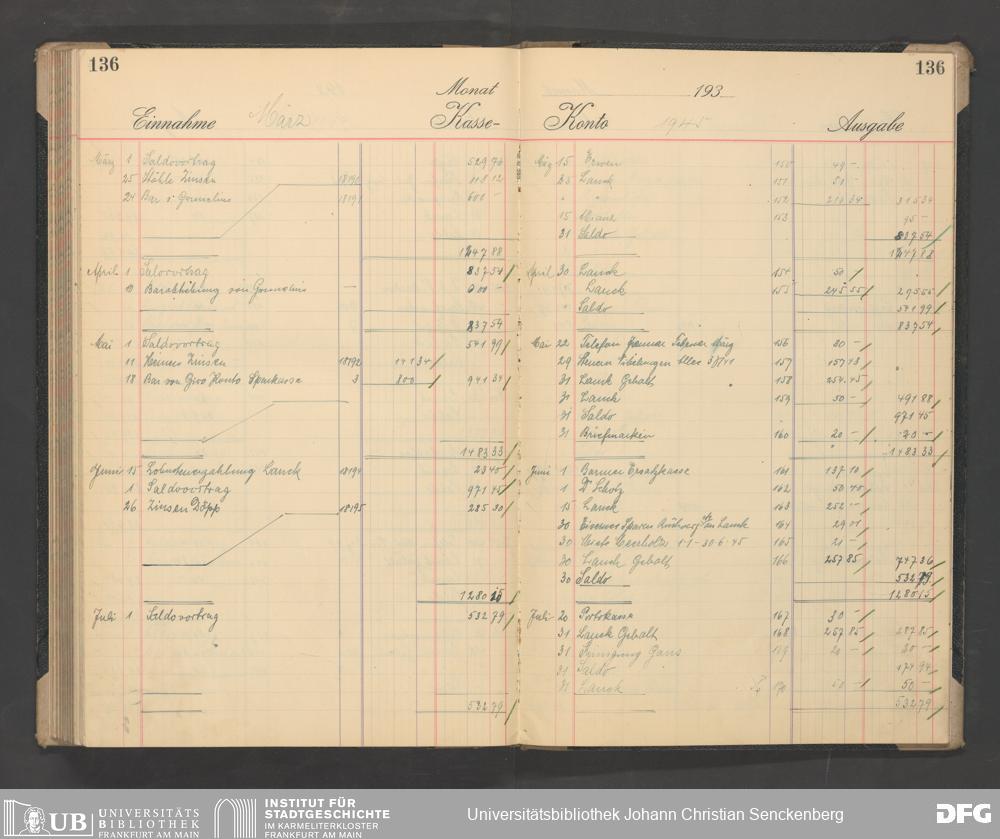 136
Monat
Einnahme März Kasse-
März 1 Saldovortrag 529 76
25 Zinsen 18190 118 12
24 Bar 18191 600 -
1247 88
April 1 837 54
600 -
837 54
Mai 1 Saldovortrag 541 99
11 Heimer Zinsen 18192 141 34
18 Bar von Giro Konto Sparkasse 3 800 - 941 34
1483 33
Juni 15 Lanck 18194 23 40
1 Saldovortrag 971 45
26 Zinsen Döpp 18195 285 30
1280 15
Juli 1 Saldovortrag 532 79
532 79
136
193
Konto 1945 Ausgabe
15 150 49 -
25 Lanck 151 50 -
" " 152 216 34 315 34
15 153 95 -
31 Saldo 837 54
1247 88
April 30 Lanck 154 50 -
Lanck 155 245 55 295 55
" Saldo 541 99
837 54
Mai 22 Telefon 156 30 -
29 157 157 43
31 Lanck Gehalt 158 254 45
31 Lanck 159 50 - 491 88
31 Saldo 971 45
31 Briefmarken 160 20 - 20 -
1483 33
Juni 1 Barmer Ersatzkasse 161 137 10
1 Dr Scholz 162 50 40
15 Lanck 163 252 -
30 Eisernes Sparen Lanck 164 29 01
30 1.1 - 30.6.45 165 21 -
30 Lanck Gehalt 166 257 85 747 36
30 Saldo 532 79
1280 15
Juli 20 Portokasse 167 30 -
31 Lanck Gehalt 168 257 85 287 85
31 Gans 169 20 - 20 -
31 Saldo 174 94
31 Lanck 170 50 - 50 -
532 79
UB UNIVERSITÄTS
BIBLIOTHEK
FRANKFURT AM MAIN
INSTITUT FÜR
STADTGESCHICHTE
IM KARMELITERKLOSTER
FRANKFURT AM MAIN
Universitätsbibliothek Johann Christian Senckenberg
DFG